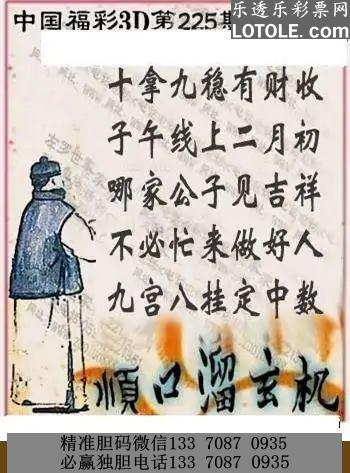 乐透乐彩票网
LOTOLE.COM
中国福彩3D第225期
十拿九稳有财收
子午线上二月初
哪家公子见吉祥
不必忙来做好人
九宫八挂定中数
顺口溜玄机
精准胆码微信133 7087 0935
必赢独胆电话133 7087 0935